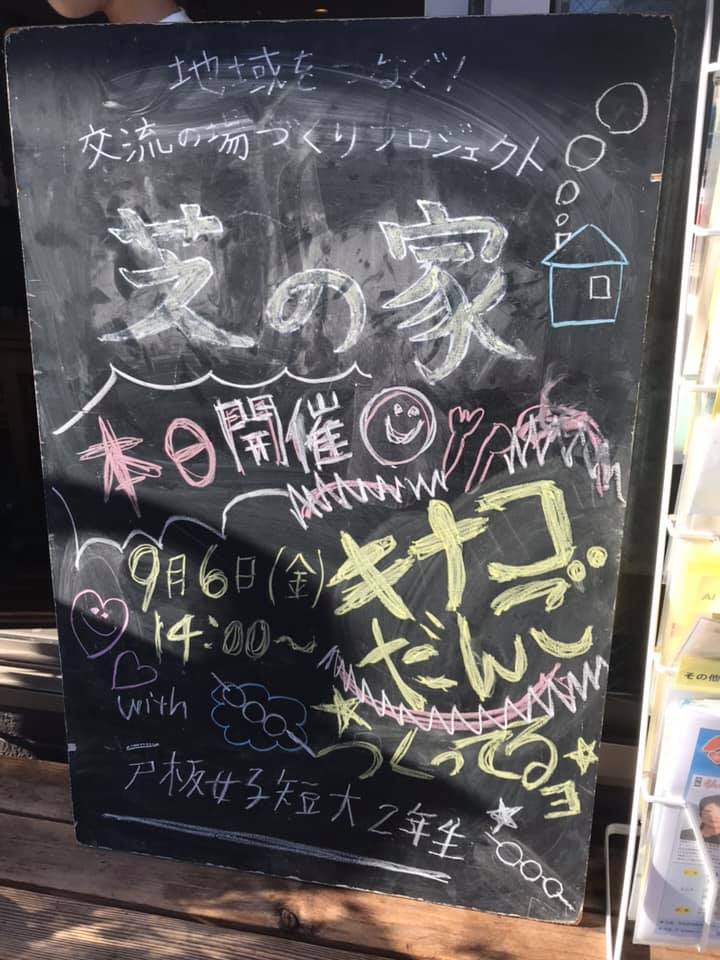 地域をつなぐ！
交流の場づくりプロジェクト
芝の家
本日開催
9月6日(金)
14:00〜
キナコ
だんご
つくってるヨ
with
戸板女子短大2年生
その他